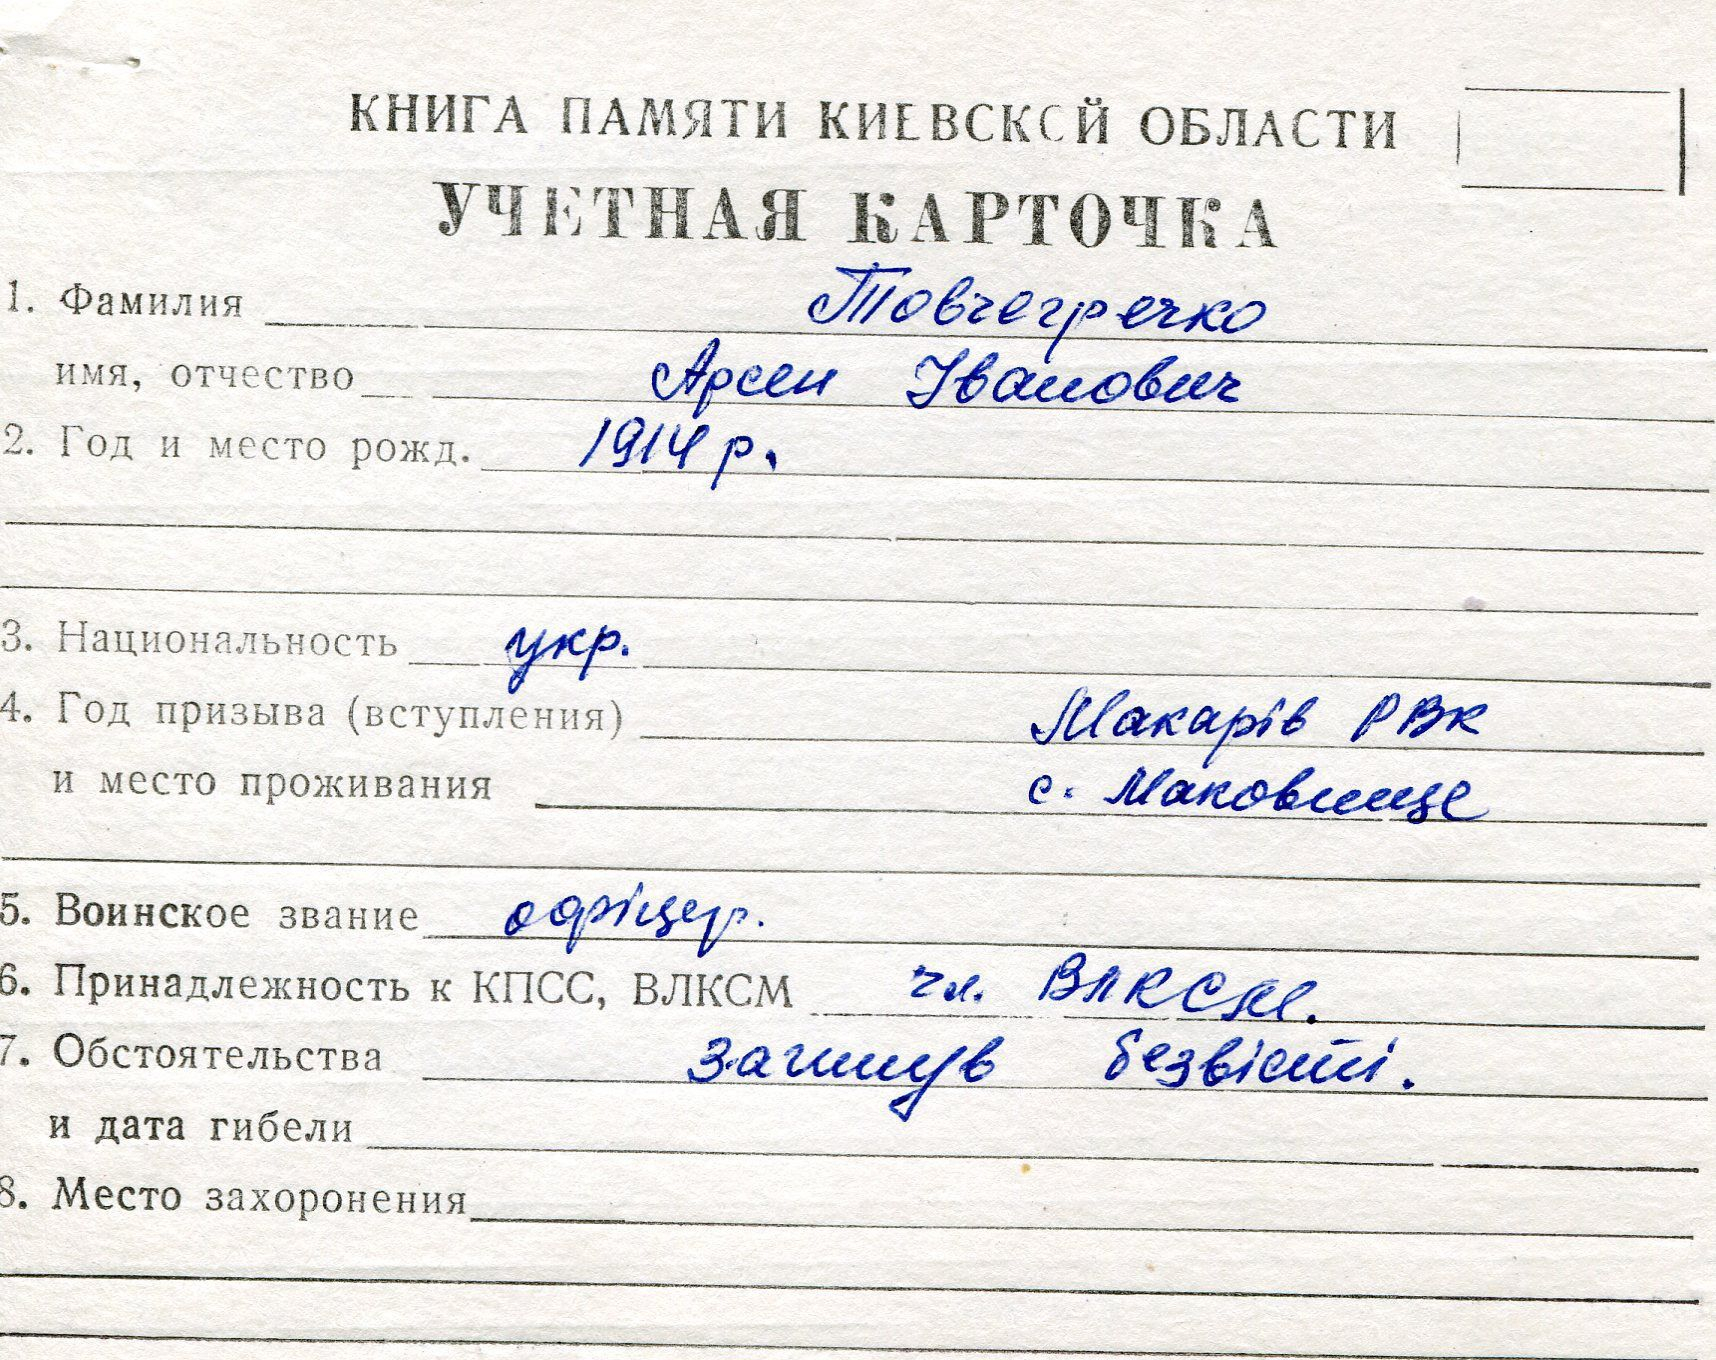 КНИГА ПАМЯТИ КИЕВСКОЙ ОБЛАСТИ
УЧЕТНАЯ КАРТОЧКА
1. Фамилия Товчегречко
имя, отчество Арсен Іванович
2. Год и место рожд. 1914 р.
3. Национальность укр.
4. Год призыва (вступления) Макарів РВК
и место проживания с. Маковище
5. Воинское звание офіцер.
6. Принадлежность к КПСС, ВЛКСМ чл. ВЛКСМ.
7. Обстоятельства загинув безвісті.
и дата гибели
8. Место захоронения